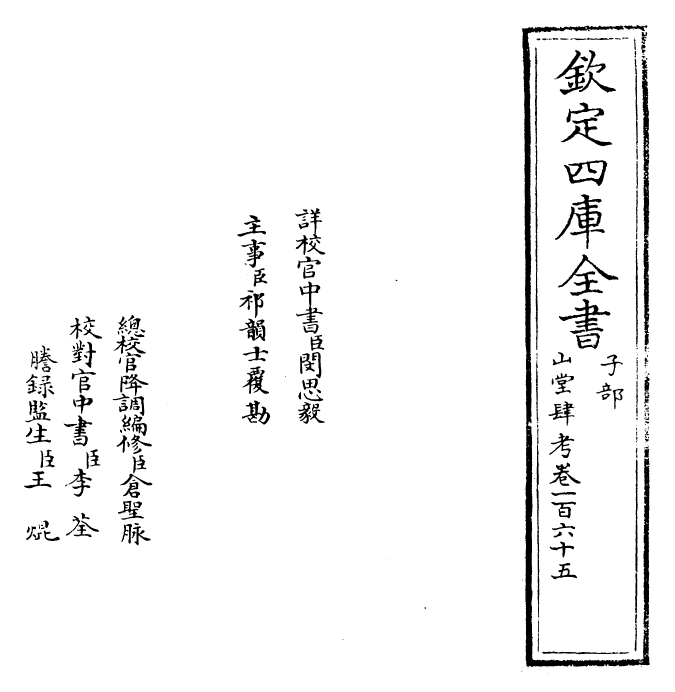 欽定四庫全書
子部
山堂肆考卷一百六十五
詳校官中書臣閔思毅
主事臣祁韻士覆勘
總校官降調編修臣倉聖脈
校對官中書臣李荃
謄録監生臣王焜